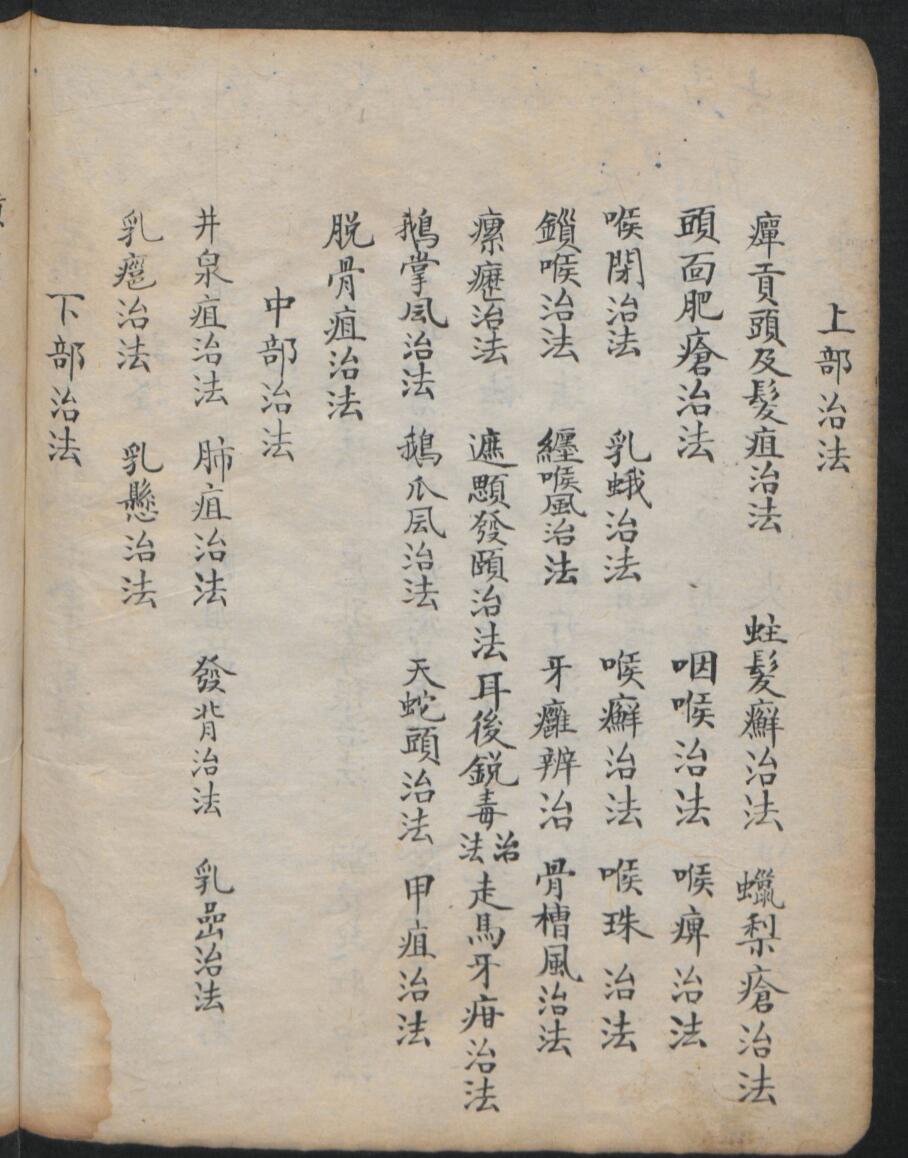 上部治法
癉貢頭及髮疽治法 蛀髮癬治法 蠟梨瘡治法
頭面肥瘡治法 咽喉治法 喉痺治法
喉閉治法 乳蛾治法 喉癬治法 喉珠治法
鎖喉治法 纏喉風治法 牙癰辨治 骨槽風治法
瘰癧治法 遮顋發頤治法 耳後鋭毒治法 走馬牙疳治法
鵝掌風治法 鵝爪風治法 天蛇頭治法 甲疽治法
脱骨疽治法
中部治法
井泉疽治法 肺疽治法 發背治法 乳嵒治法
乳癰治法 乳懸治法
下部治法